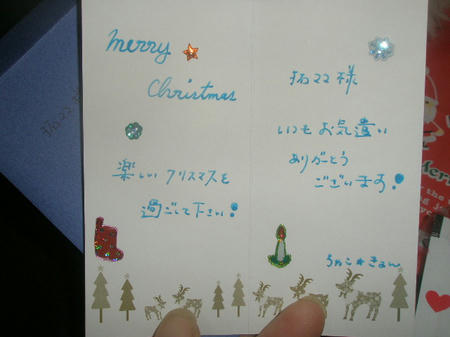 merry
Christmas
楽しい クリスマスを
過ごして下さい!
様
いつも お気遣い
ありがとう
ございます!